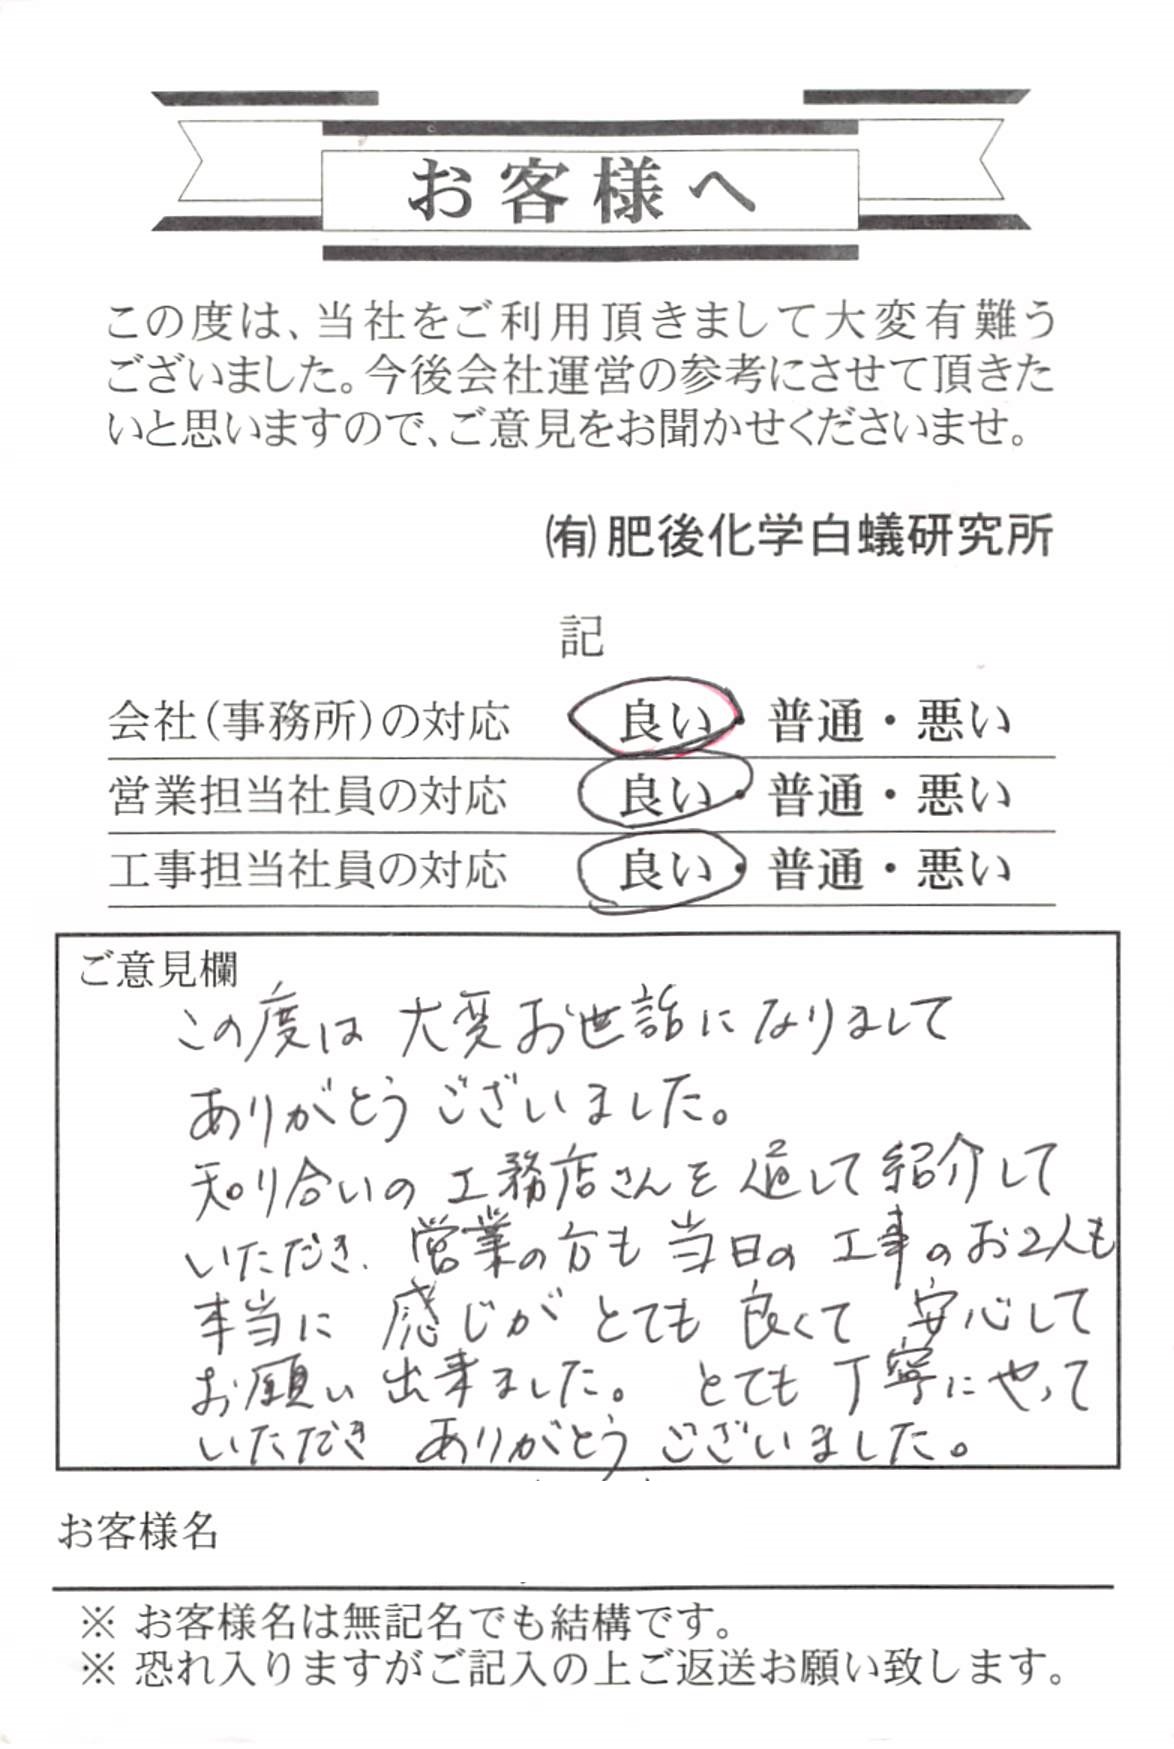 お客様へ
この度は、当社をご利用頂きまして大変有難う
ございました。今後会社運営の参考にさせて頂きた
いと思いますので、ご意見をお聞かせくださいませ。
㈲肥後化学白蟻研究所
記
会社(事務所)の対応 良い・普通・悪い
営業担当社員の対応 良い・普通・悪い
工事担当社員の対応 良い・普通・悪い
ご意見欄
この度は 大変お世話になりまして
ありがとうございました。
知り合いの工務店さんを通して紹介して
いただき、営業の方も当日の工事のお2人も
本当に 感じが とても 良くて 安心して
お願い出来ました。 とても丁寧にやって
いただき ありがとう ございました。
お客様名
※ お客様名は無記名でも結構です。
※ 恐れ入りますがご記入の上ご返送お願い致します。